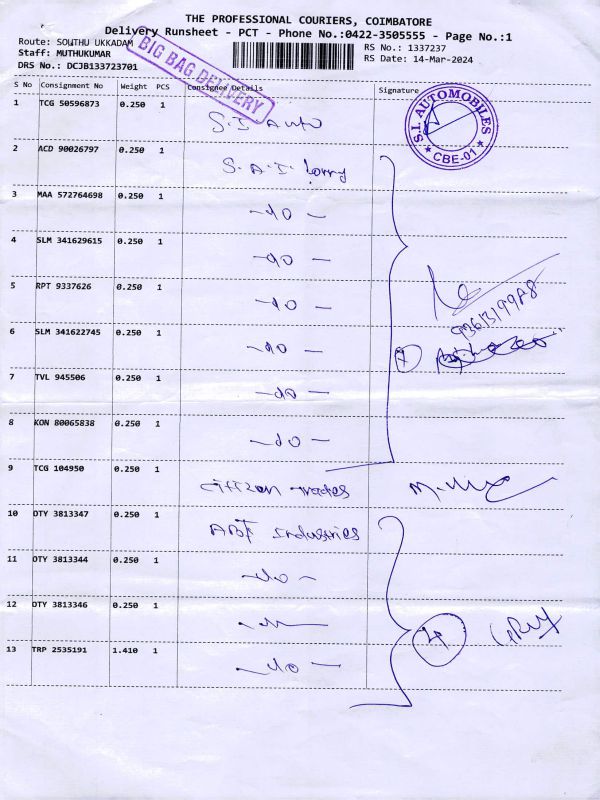 THE PROFESSIONAL COURIERS, COIMBATORE
Delivery Runsheet - PCT - Phone No.:0422-3505555 - Page No.:1
Route: SOUTHU UKKADAM
RS No.: 1337237
Staff: MUTHUKUMAR
RS Date: 14-Mar-2024
DRS No.: DCJB133723701
BIG BAG DELIVERY
S No Consignment No Weight PCS Consignee Details Signature
1 TCG 50596873 0.250 1 S.I Auto
S.I. AUTOMOBILES
★ CBE-01 ★
2 ACD 90026797 0.250 1 S.A.I. Lorry
3 MAA 572764698 0.250 1 -do-
4 SLM 341629615 0.250 1 -do-
5 RPT 9337626 0.250 1 -do-
6 SLM 341622745 0.250 1 -do- 7
7 TVL 945506 0.250 1 -do-
8 KON 80065838 0.250 1 -do-
9 TCG 104950 0.250 1 citizon
10 OTY 3813347 0.250 1 ABT Industries
11 OTY 3813344 0.250 1 -do-
12 OTY 3813346 0.250 1 4
13 TRP 2535191 1.410 1 -do-